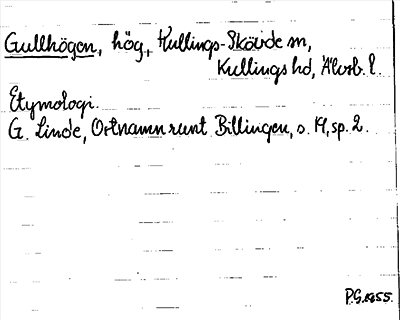 Gullhögen, hög, Kullings-Skövde sn,
Kullings hd, Älvsb. l.
Etymologi.
G. Linde, Ortnamn runt Billingen, s. 14, sp. 2.
P.G. 1955.